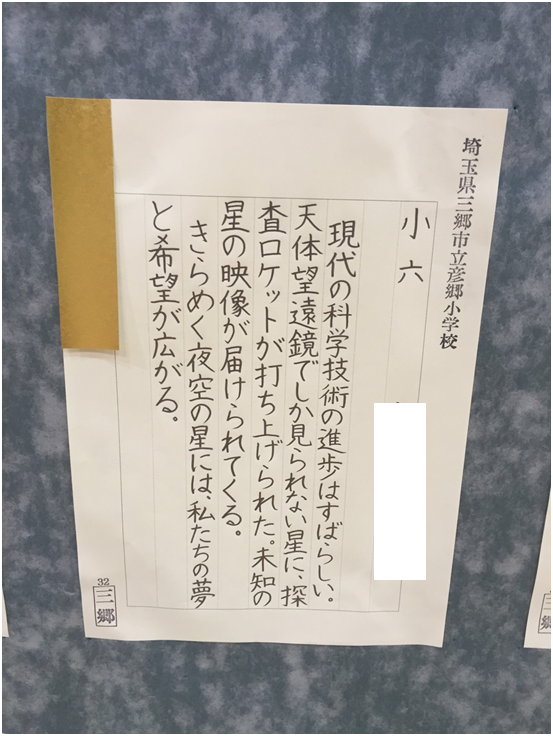 埼玉県三郷市立彦郷小学校
小六
現代の科学技術の進歩はすばらしい。
天体望遠鏡でしか見られない星に、探
査ロケットが打ち上げられた。未知の
星の映像が届けられてくる。
きらめく夜空の星には、私たちの夢
と希望が広がる。
32
三郷
三郷